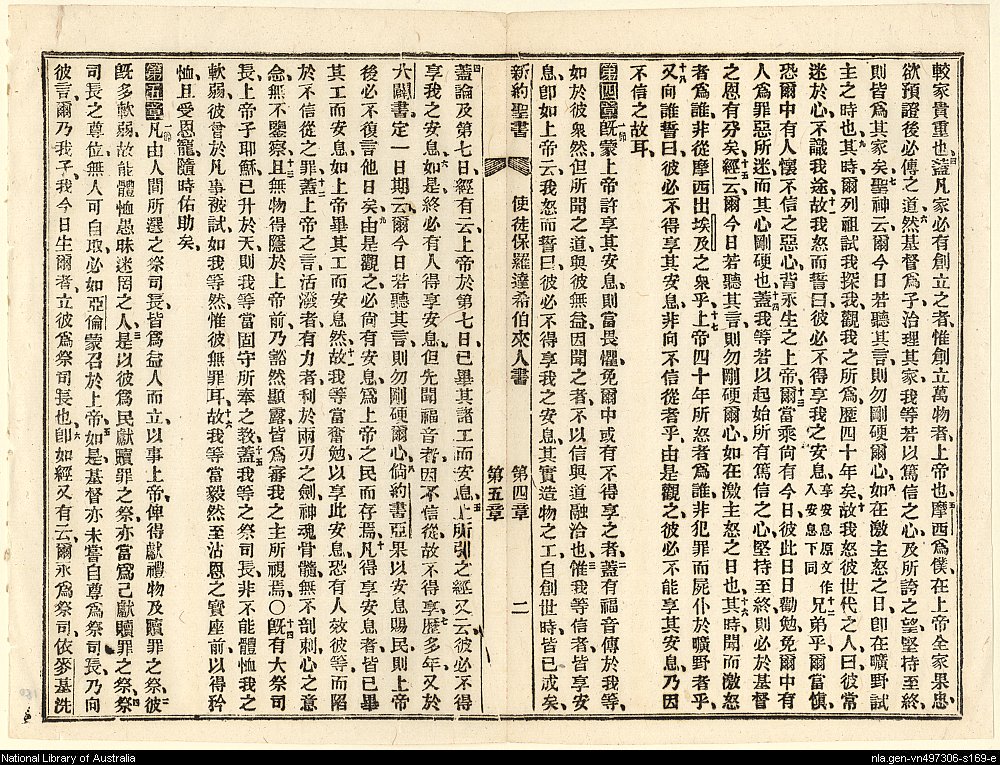 較家貴重也四蓋凡家必有創立之者惟創立萬物者上帝也五摩西爲僕在上帝全家果忠
欲預證後必傳之道六然基督爲子治理其家我等若以篤信之心及所誇之望堅持至終
則皆爲其家矣七聖神云爾今日若聽其言八則勿剛硬爾心如在激主怒之日即在曠野試
主之時也九其時爾列祖試我探我觀我之所爲歷四十年矣十故我怒彼世代之人曰彼常
迷於心不識我途十一故我怒而誓曰彼必不得享我之安息享安息原文作入安息下同十二兄弟乎爾當愼
恐爾中有人懷不信之惡心背永生之上帝十三爾當乘尙有今日彼此日日勸勉免爾中有
人爲罪惡所迷而其心剛硬也十四蓋我等若以起始所有篤信之心堅持至終則必於基督
之恩有分矣十五經云爾今日若聽其言則勿剛硬爾心如在激主怒之日也十六其時聞而激怒
者爲誰非從摩西出埃及之衆乎十七上帝四十年所怒者爲誰非犯罪而屍仆於曠野者乎
十八又向誰誓曰彼必不得享其安息非向不信從者乎十九由是觀之彼必不能享其安息乃因
不信之故耳
第四章一節旣蒙上帝許享其安息則當畏懼免爾中或有不得享之者二蓋有福音傳於我等
如於彼衆然但所聞之道與彼無益因聞之者不以信與道融洽也三惟我等信者皆享安
息卽如上帝云我怒而誓曰彼必不得享我之安息其實造物之工自創世時皆已成矣
新約聖書 使徒保羅達希伯來人書 第四章 第五章 二
四蓋論及第七日經有云上帝於第七日已畢其諸工而安息五上所引之經又云彼必不得
享我之安息六如是終必有人得享安息但先聞福音者因不信從故不得享七歷多年又於
大闢書定一日期云爾今日若聽其言則勿剛硬爾心八倘約書亞果以安息賜民則上帝
後必不復言他日矣九由是觀之必尙有安息爲上帝之民而存焉十凡得享安息者皆已畢
其工而安息如上帝畢其工而安息然十一故我等當奮勉以享此安息恐有人效彼等而陷
於不信從之罪十二蓋上帝之言活潑者有力者利於兩刃之劍神魂骨髓無不剖刺心之意
念無不鑒察十三且無物得隱於上帝前乃豁然顯露皆爲審我之主所視焉〇十四旣有大祭司
長上帝子耶穌已升於天則我等當固守所奉之教十五蓋我等之祭司長非不能體恤我之
軟弱彼曾於凡事被試如我等然惟彼無罪耳十六故我等當毅然至沾恩之寶座前以得矜
恤且受恩寵隨時佑助矣
第五章一節凡由人間所選之祭司長皆爲益人而立以事上帝俾得獻禮物及贖罪之祭二彼
旣多軟弱故能體恤愚昧迷罔之人三是以彼爲民獻贖罪之祭亦當爲己獻贖罪之祭四祭
司長之尊位無人可自取必如亞倫蒙召於上帝五如是基督亦未嘗自尊爲祭司長乃向
彼言爾乃我子我今日生爾者立彼爲祭司長也六卽如經又有云爾永爲祭司依麥基洗
National Library of Australia
nla.gen-vn497306-s169-e